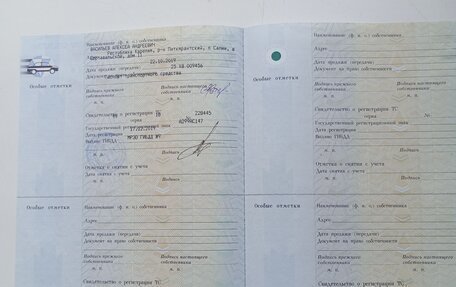 Наименование (ф. и. о.) собственника
ВАСИЛЬЕВ АЛЕКСЕЙ АНДРЕЕВИЧ
Республика Карелия, р-н Питкярантский, п Салми, в
дом
Дата продажи (передачи)
22.10.2019
25 ХВ 009456
Документ на право собственности
Паспорт транспортного средства
Особые отметки
Подпись прежнего собственника
Подпись настоящего собственника
М. П.
М. П.
Свидетельство о регистрации ТС
серия
10
№
228445
Государственный регистрационный знак
Дата регистрации
Выдано ГИБДД
МРЭО ГИБДД
Отметка о снятии с учета
Дата снятия с учета
М. П.
Подпись
Наименование (ф. и. о.) собственника
Адрес
Дата продажи (передачи)
Документ на право собственности
Особые отметки
Подпись прежнего собственника
Подпись настоящего собственника
М. П.
М. П.
Свидетельство о регистрации ТС
серия
№
Государственный регистрационный знак
Дата регистрации
Выдано ГИБДД
Отметка о снятии с учета
Дата снятия с учета
М. П.
Подпись
Особые отметки
Наименование (ф. и. о.) собственника
Адрес
Дата продажи (передачи)
Документ на право собственности
Подпись прежнего собственника
Подпись настоящего собственника
М. П.
М. П.
Свидетельство о регистрации ТС
Особые отметки
Наименование (ф. и. о.) собственника
Адрес
Дата продажи (передачи)
Документ на право собственности
Подпись прежнего собственника
Подпись настоящего собственника
М. П.
М. П.
Свидетельство о регистрации ТС